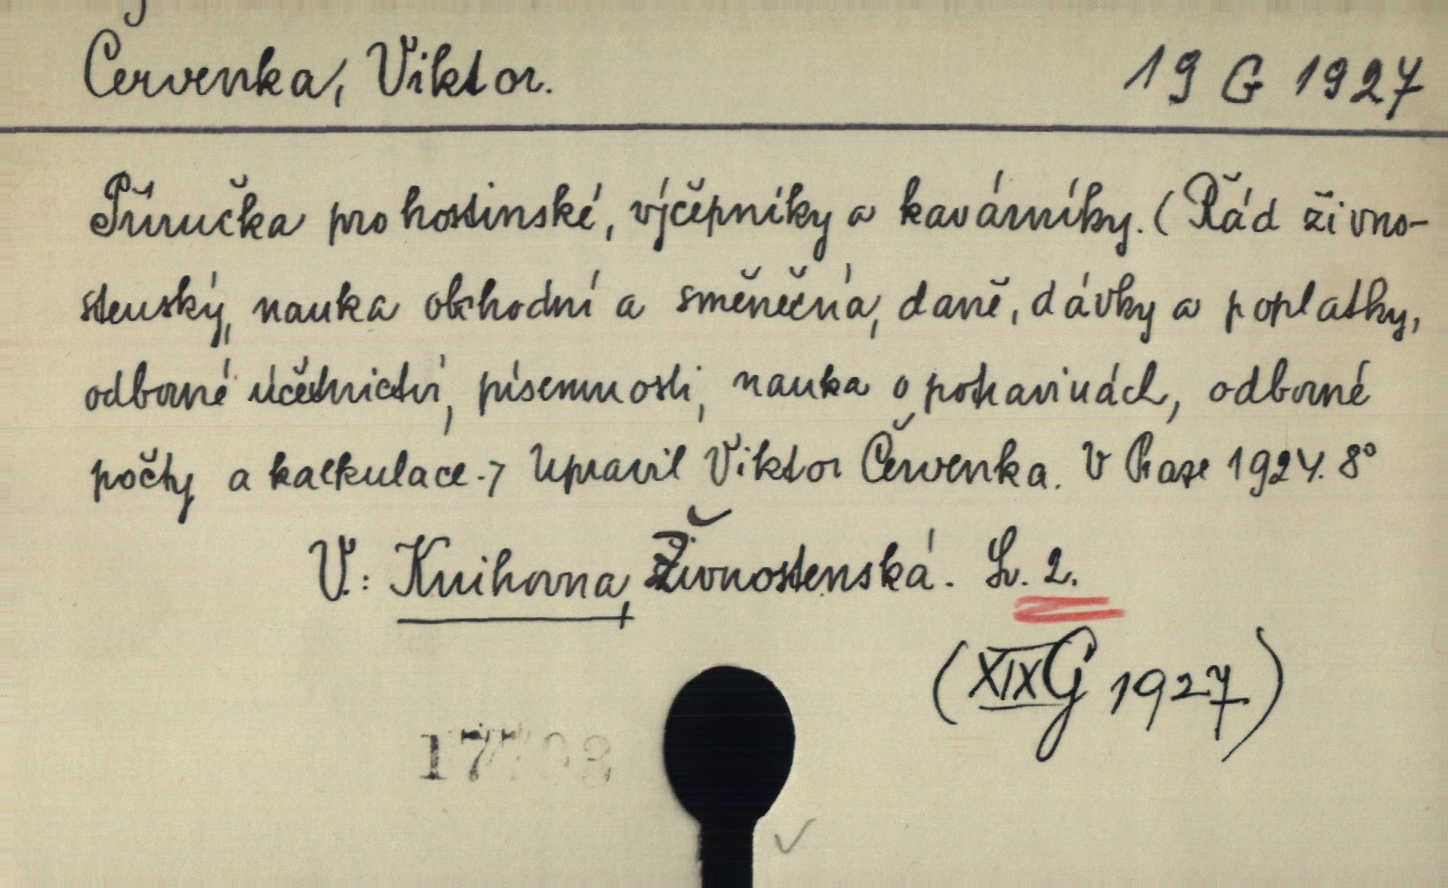 Červenka, Viktor. 19 G 1927
Příručka pro hostinské, výčepníky a kavárníky. (Řád živno-
stenský, nauka obchodní a směnečná, daně, dávky a poplatky,
odborné účetnictví, písemnosti, nauka o potravinách, odborné
počty a kalkulace.) Upravil Viktor Červenka. V Praze 1924. 8°
V.: Knihovna, Živnostenská. Sv. 2.
(XIX G 1927)